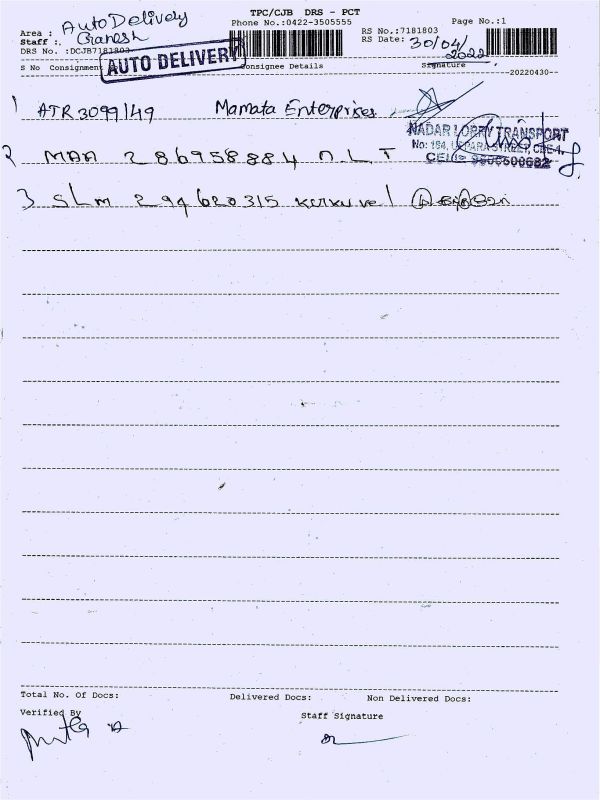 TPC/CJB DRS - PCT
Phone No.:0422-3505555
Page No.:1
Area : Auto Delively
Staff : Ganesh
DRS No. :DCJB7181803
RS No.:7181803
RS Date: 30/04/2022
AUTO DELIVERY
S No Consignment Consignee Details Signature
20220430
1 ATR3099149 Mamata Enterprises
NADAR LORRY TRANSPORT
2 MAA 286958884 N L T
3 SLM 294620315
Total No. Of Docs: Delivered Docs: Non Delivered Docs:
Verified By
Staff Signature